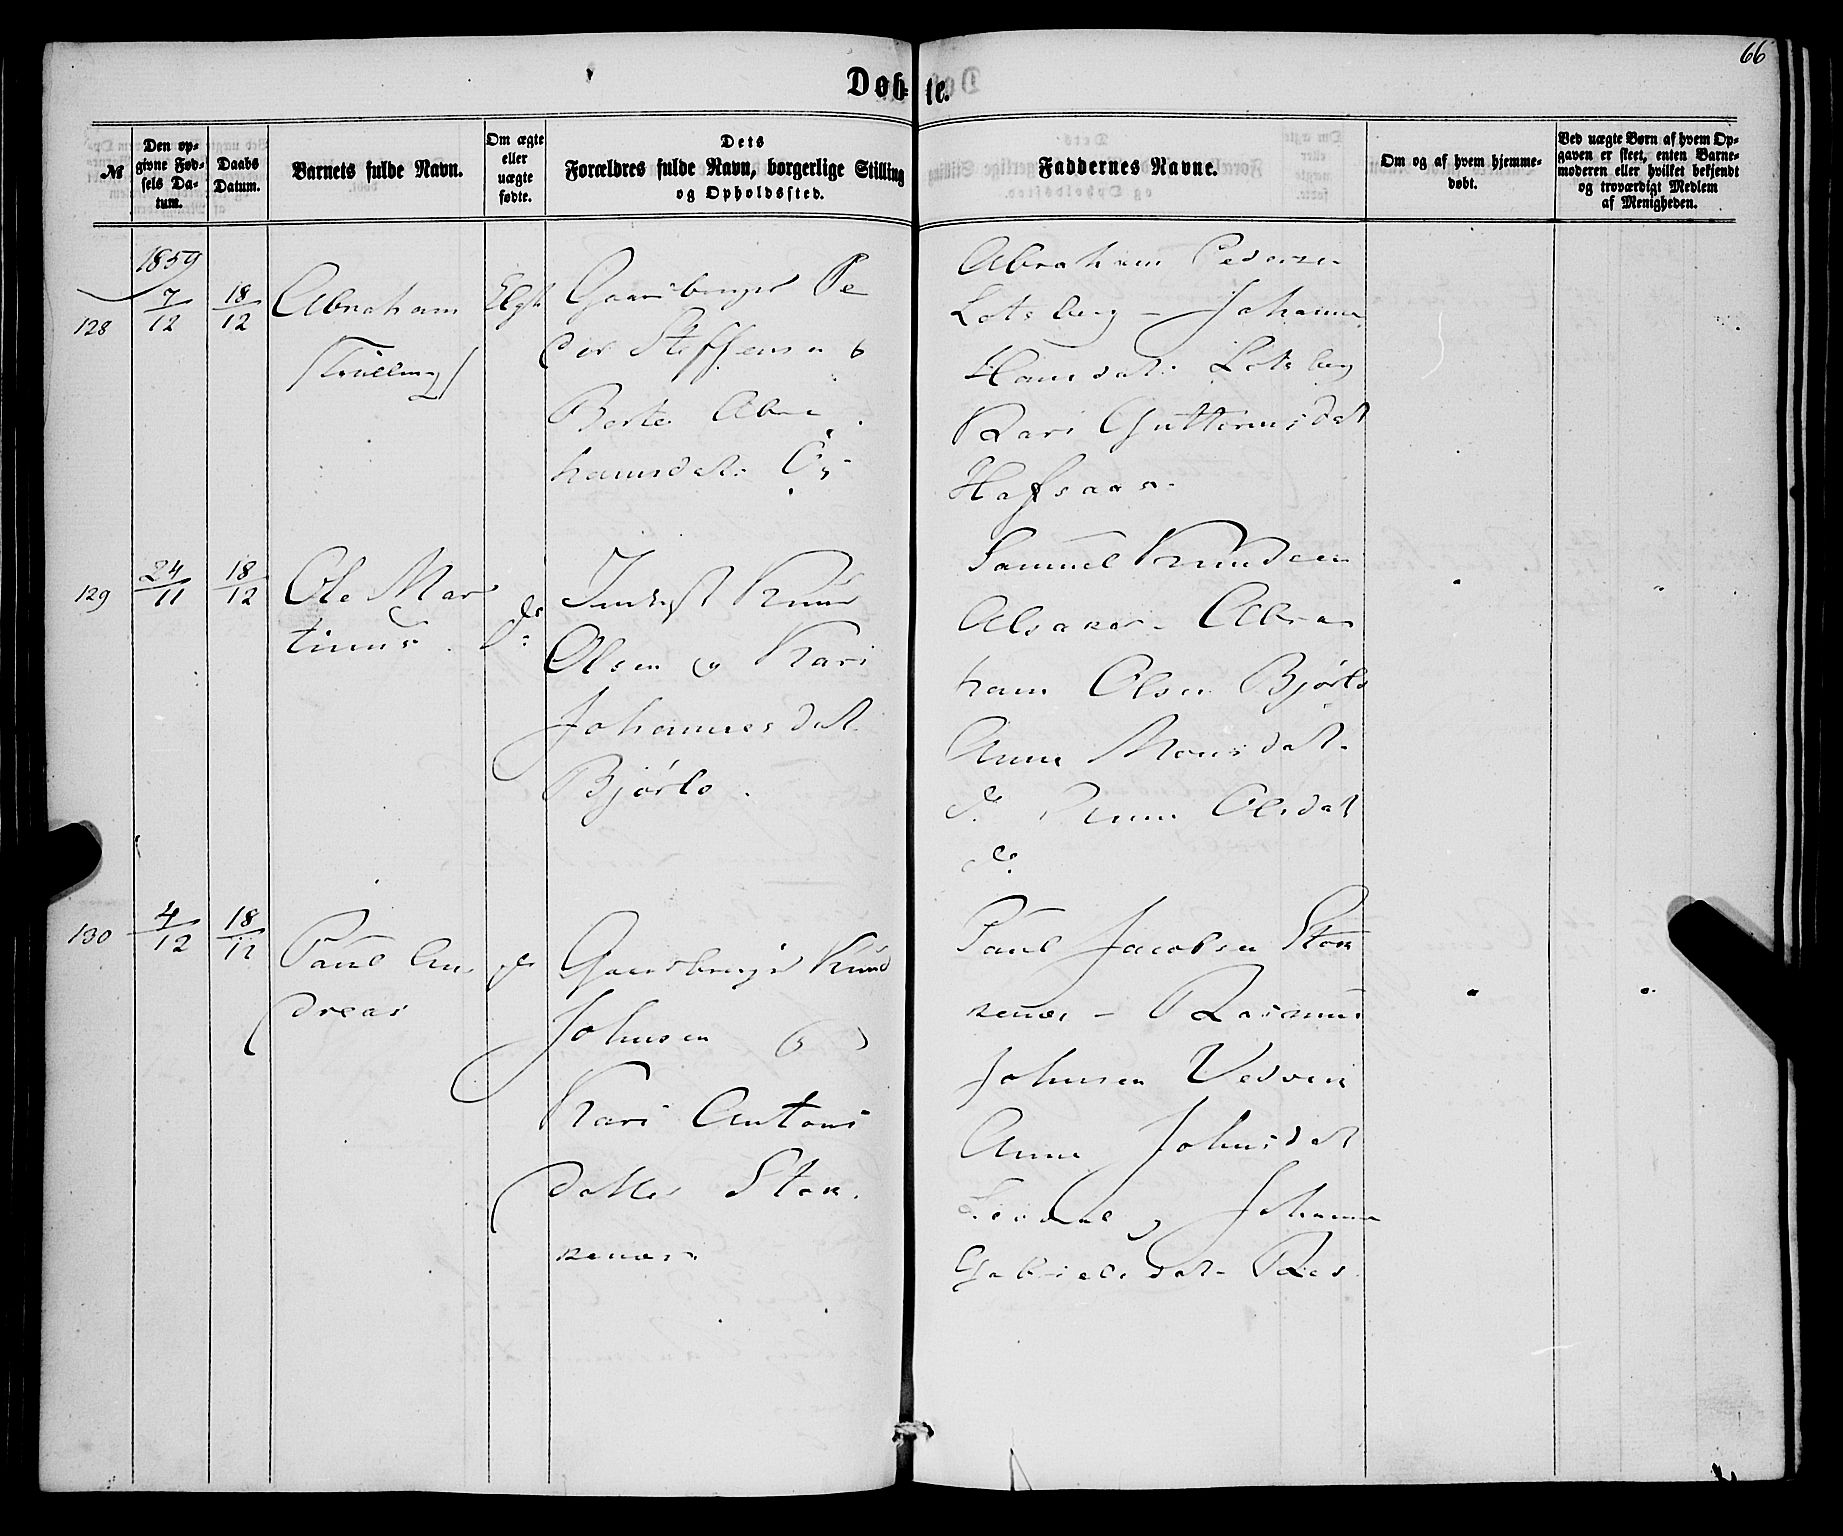 66
Døb= te.
№
Den op-
givne Fød-
sels Da-
tum.
Daabs
Datum.
Barnets fulde Navn.
Om ægte
eller
uægte
fødte.
Dets
Forældres fulde Navn, borgerlige Stilling
og Opholdssted.
Faddernes Navne.
Om og af hvem hjemme-
døbt.
Ved uægte Børn af hvem Op-
gaven er skeet, enten Barne-
moderen eller hvilket bekjendt
og troværdigt Medlem
af Menigheden.
1859
128
7/12
18/12
Abraham
(Trilling)
Ægt
Gaardbruger Pe
der Steffensen &
Berte Abra
hamsdat.
Abraham Pedersen
Lotsberg - Johanne
Hansdat. Lotsberg
Kari Guttormsdat
Hafsaas.
129
24/11
18/12
Ole Mar
tinus.
do
Inderst Knud
Olsen og Kari
Johannesdat.
Bjørlo.
Samuel Knudsen
Alsaker - Abra
ham Olsen Bjørlo
Anna Monsdat.
do. Anna Olsdat
do.
130
4/12
18/12
Paul An
dreas
do
Gaardbruger Knud
Johnsen og
Kari Antoni
datter Stok
kenæs.
Paul Jacobsen Stok
kenæs - Rasmus
Johnsen Vedvik
Anna Johnsdat
Leirdal, Johanne
Gabrielsdat. Res